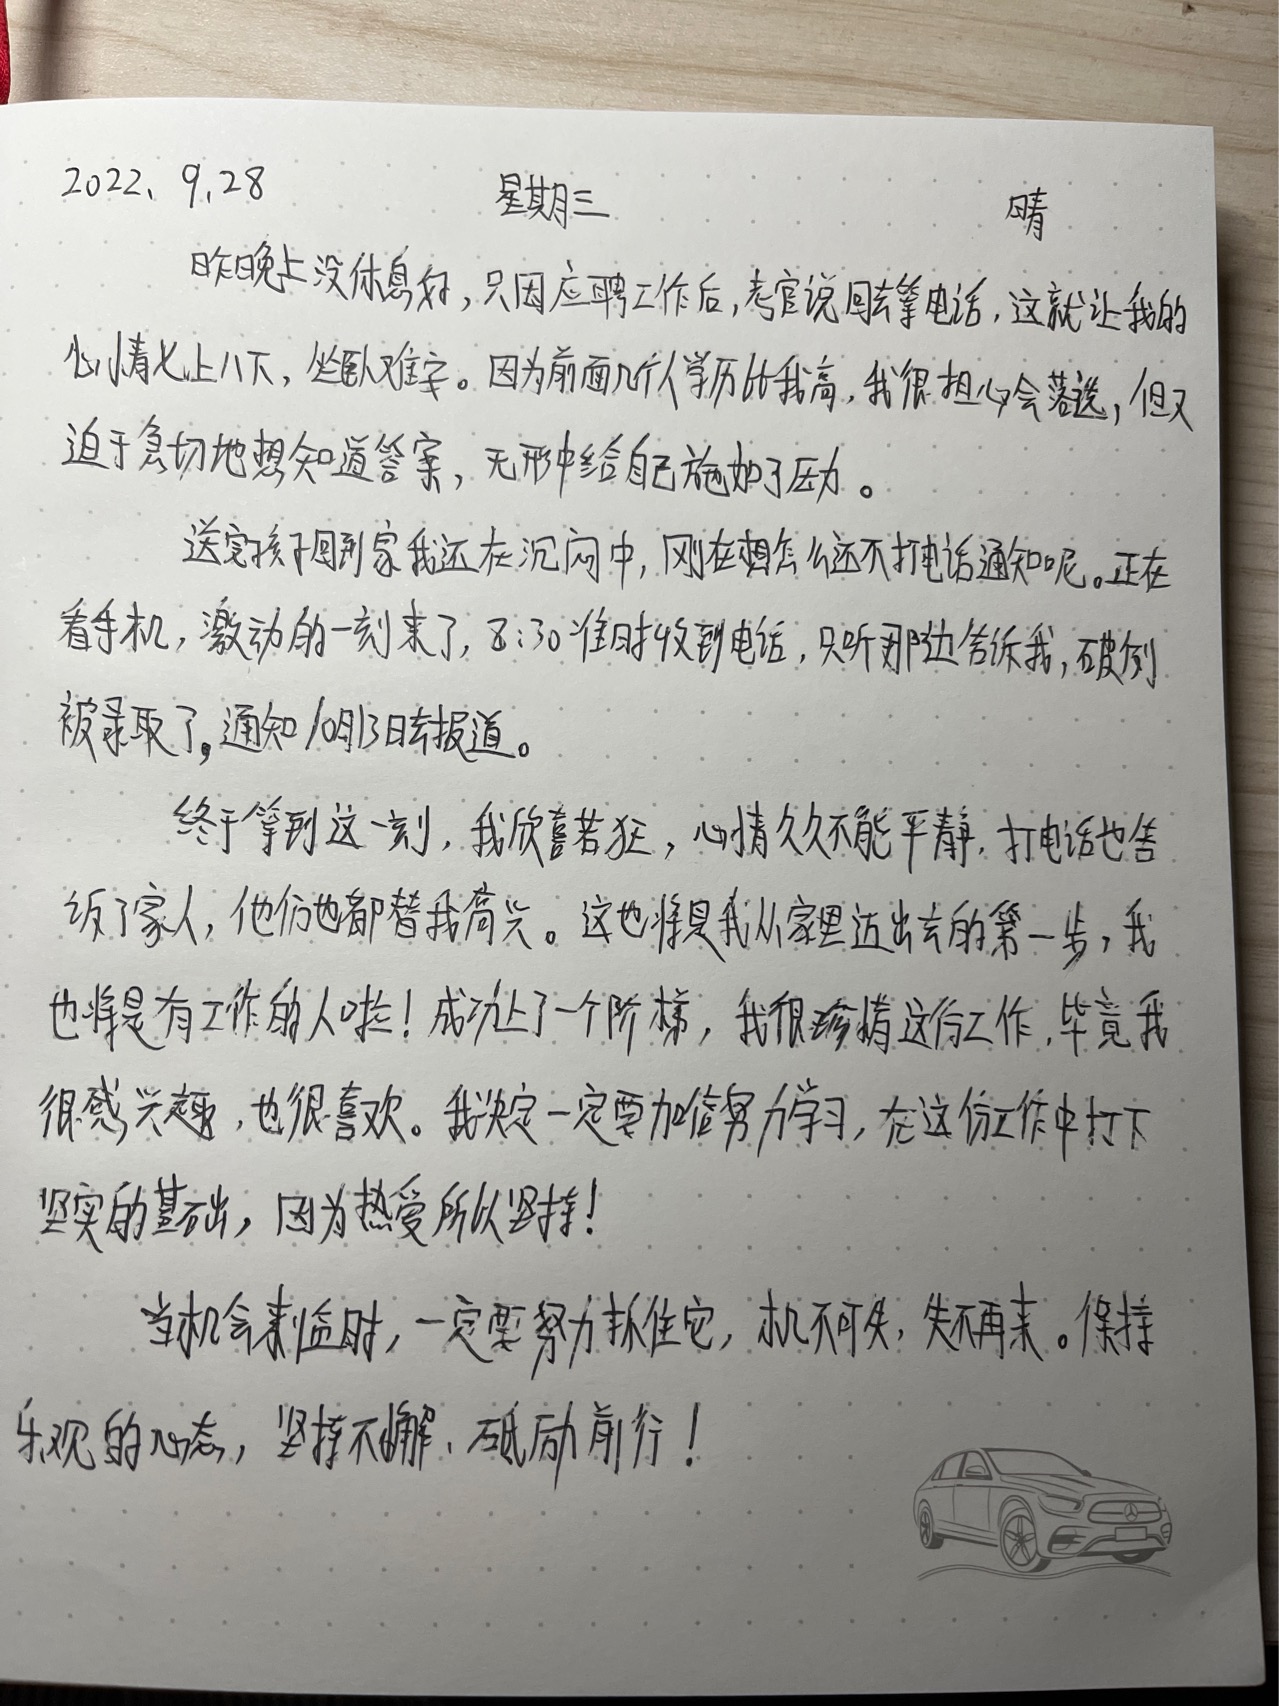 2022、9.28 星期三 晴
昨晚上没休息好，只因应聘工作后，考官说回去等电话，这就让我的
心情七上八下，坐卧难安。因为前面几个人学历比我高，我很担心会落选，但又
迫于急切地想知道答案，无形中给自己施加了压力。
送完孩子回到家我还在沉闷中，刚在想怎么还不打电话通知呢。正在
看手机，激动的一刻来了，8:30准时收到电话，只听那边告诉我，破例
被录取了，通知10月13日去报道。
终于等到这一刻，我欣喜若狂，心情久久不能平静，打电话也告
诉了家人，他们也都替我高兴。这也将是我从家里迈出去的第一步，我
也将是有工作的人啦！成功上了一个阶梯，我很珍惜这份工作，毕竟我
很感兴趣，也很喜欢。我决定一定要加倍努力学习，在这份工作中打下
坚实的基础，因为热爱所以坚持！
当机会来临时，一定要努力抓住它，机不可失，失不再来。保持
乐观的心态，坚持不懈、砥励前行！